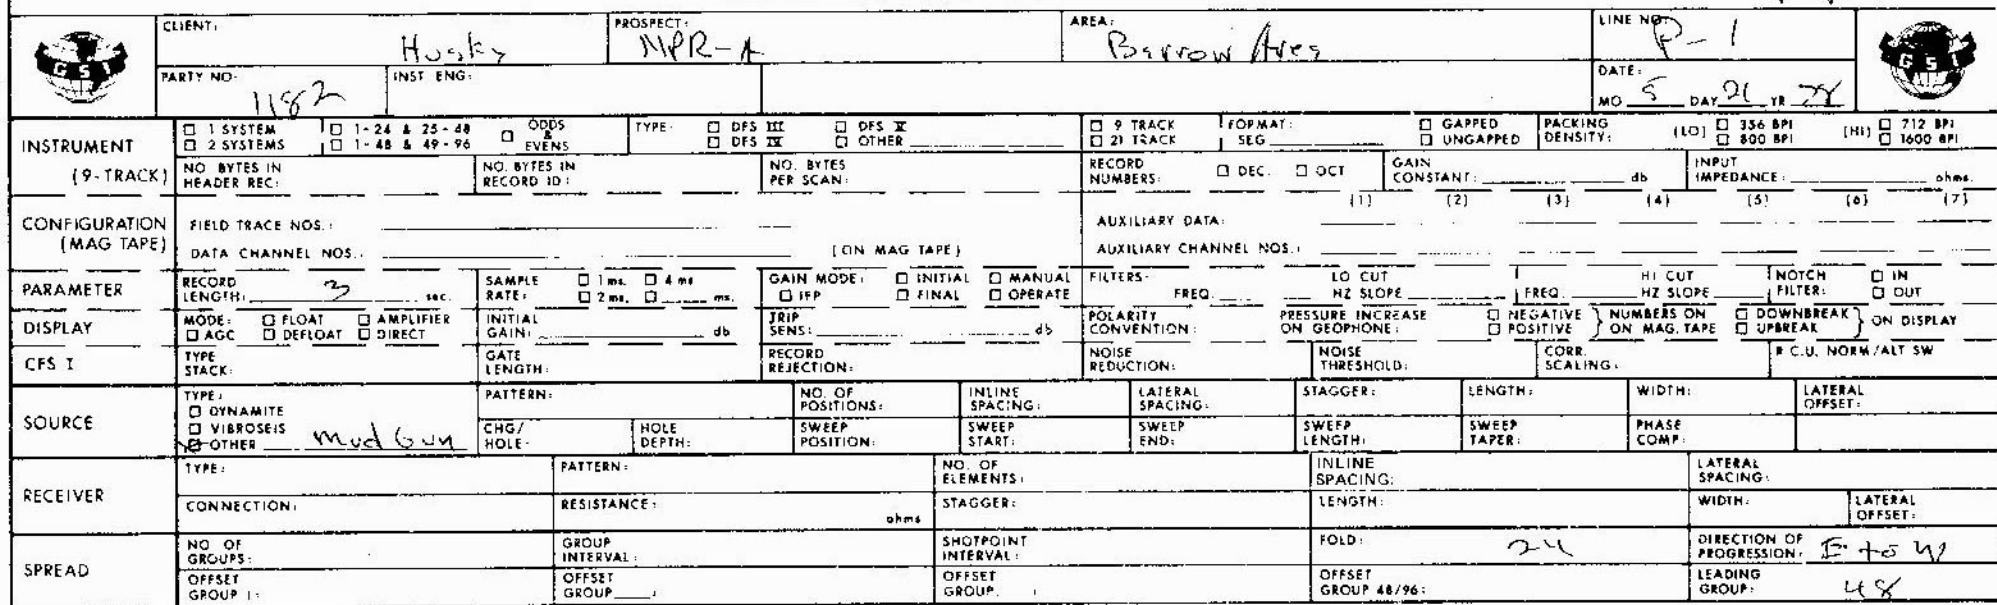 CLIENT: Husky PROSPECT: NPR-A AREA: Barrow Area LINE NO. P-1
GSI GSI
PARTY NO. 1182 INST ENG: DATE: MO 5 DAY 21 YR 78
INSTRUMENT (9-TRACK)
□ 1 SYSTEM □ 1-24 & 25-48 □ ODDS & EVENS TYPE: □ DFS III □ DFS V □ 9 TRACK FORMAT: □ GAPPED PACKING DENSITY: (LO) □ 356 BPI (HI) □ 712 BPI
□ 2 SYSTEMS □ 1-48 & 49-96 □ DFS IV □ OTHER □ 21 TRACK SEG □ UNGAPPED □ 800 BPI □ 1600 BPI
NO BYTES IN HEADER REC: NO. BYTES IN RECORD ID: NO. BYTES PER SCAN: RECORD NUMBERS: □ DEC. □ OCT GAIN CONSTANT: db INPUT IMPEDANCE: ohms.
CONFIGURATION (MAG TAPE)
(1) (2) (3) (4) (5) (6) (7)
FIELD TRACE NOS.: AUXILIARY DATA:
DATA CHANNEL NOS.: (ON MAG TAPE) AUXILIARY CHANNEL NOS.:
PARAMETER RECORD LENGTH: 3 sec. SAMPLE RATE: □ 1 ms. □ 4 ms □ 2 ms. □ ms. GAIN MODE: □ INITIAL □ MANUAL □ IFP □ FINAL □ OPERATE FILTERS- FREQ. LO CUT HZ SLOPE FREQ. HI CUT HZ SLOPE NOTCH FILTER: □ IN □ OUT
DISPLAY MODE: □ FLOAT □ AMPLIFIER □ AGC □ DEFLOAT □ DIRECT INITIAL GAIN: db TRIP SENS: db POLARITY CONVENTION: PRESSURE INCREASE ON GEOPHONE: □ NEGATIVE □ POSITIVE } NUMBERS ON MAG. TAPE □ DOWNBREAK □ UPBREAK } ON DISPLAY
CFS I TYPE STACK: GATE LENGTH: RECORD REJECTION: NOISE REDUCTION: NOISE THRESHOLD: CORR. SCALING: R C.U. NORM/ALT SW
SOURCE TYPE: PATTERN: NO. OF POSITIONS: INLINE SPACING: LATERAL SPACING: STAGGER: LENGTH: WIDTH: LATERAL OFFSET:
□ DYNAMITE
□ VIBROSEIS
☒ OTHER Mud Gun CHG/HOLE: HOLE DEPTH: SWEEP POSITION: SWEEP START: SWEEP END: SWEEP LENGTH: SWEEP TAPER: PHASE COMP:
RECEIVER TYPE: PATTERN: NO. OF ELEMENTS: INLINE SPACING: LATERAL SPACING:
CONNECTION: RESISTANCE: ohms STAGGER: LENGTH: WIDTH: LATERAL OFFSET:
SPREAD NO. OF GROUPS: GROUP INTERVAL: SHOTPOINT INTERVAL: FOLD: 24 DIRECTION OF PROGRESSION: E to W
OFFSET GROUP 1: OFFSET GROUP : OFFSET GROUP : OFFSET GROUP 48/96: LEADING GROUP: 48